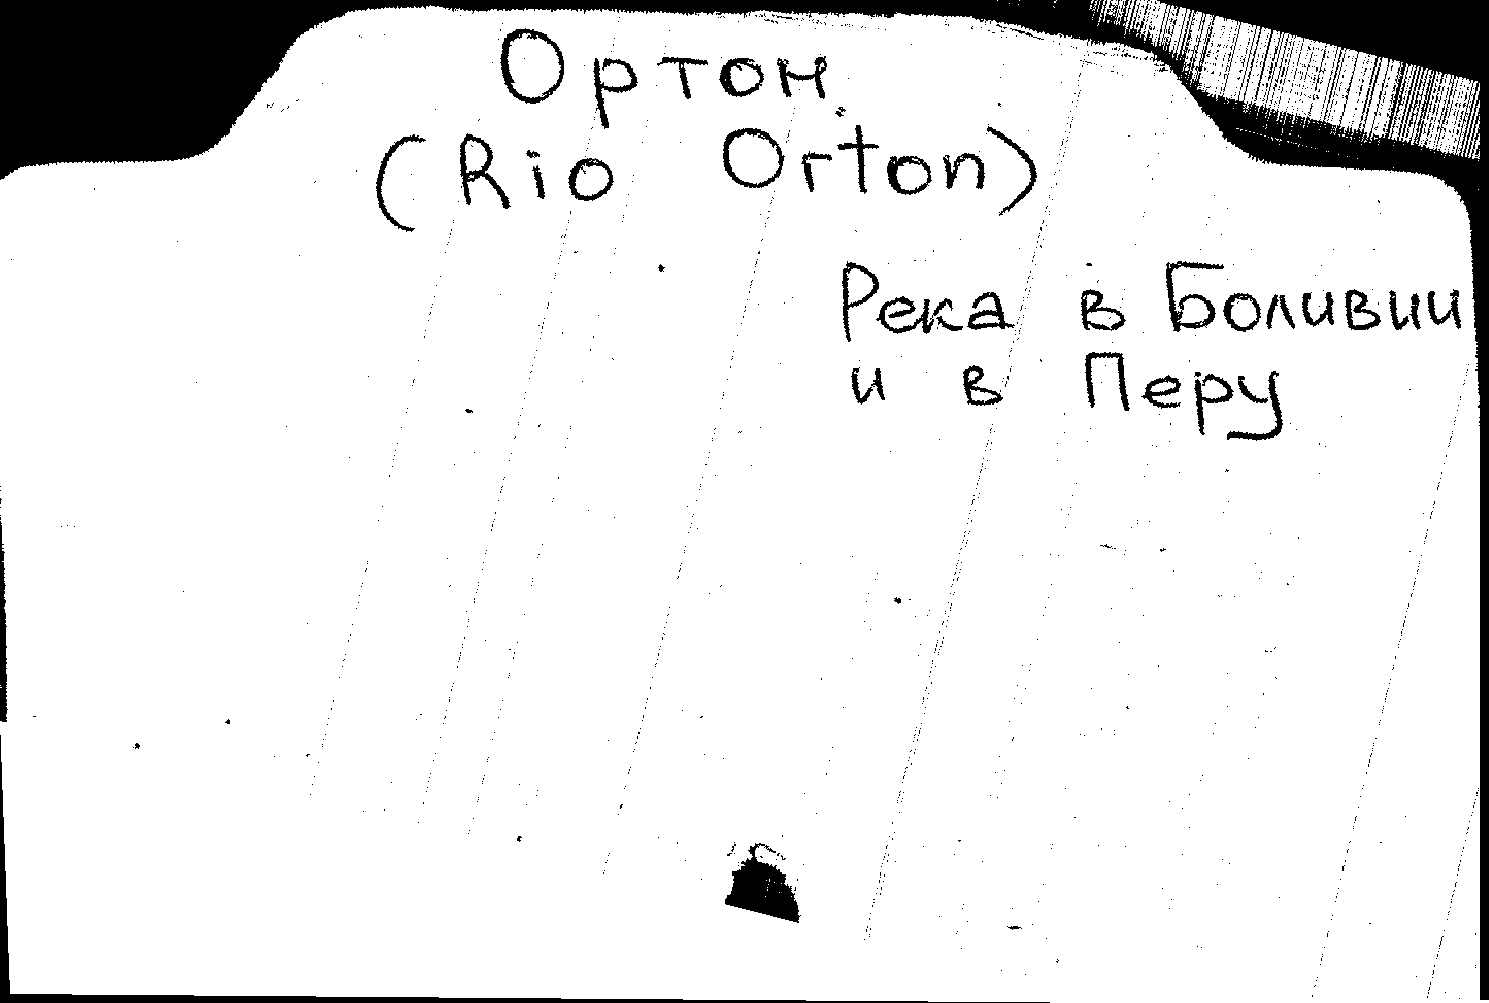 Ортон
(Rio Orton)
Река в Боливии
и в Перу